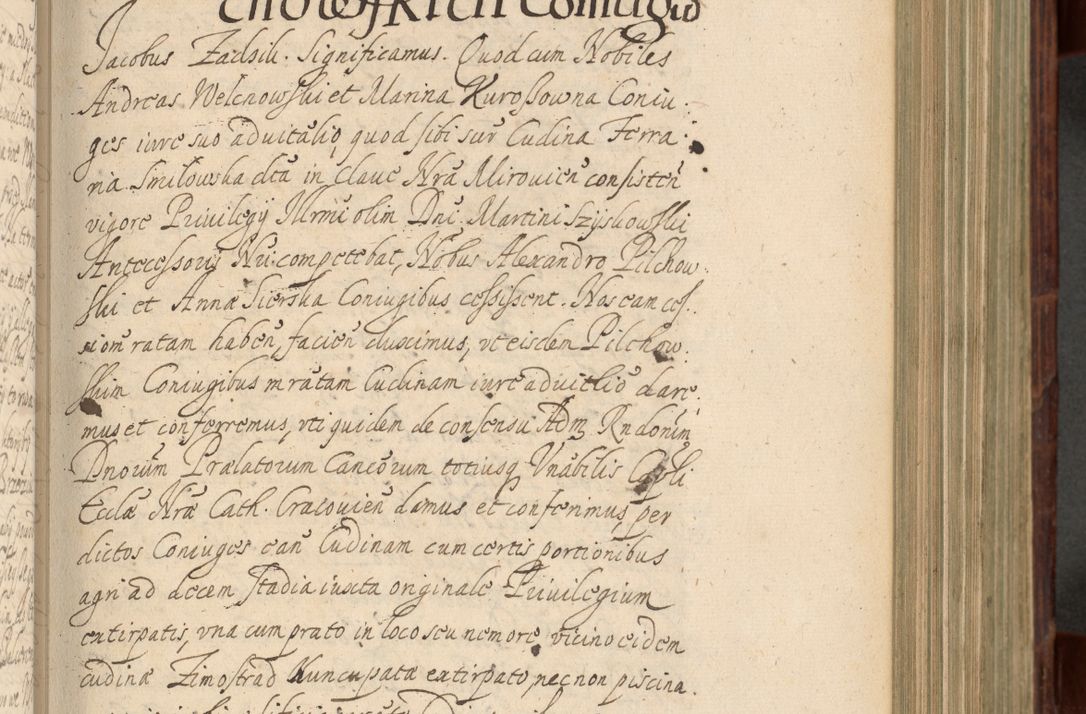 chowskich Coniugio
Jacobus Zadsik. Significamus. Quod cum Nobiles
Andreas Welcnowski et Marina Kurossowna Coniu.
ges iure suo aduitalio, quod sibi sup Cudina Ferra.
ria Smilowska dta in Claue Nra Mirouien consisten
vigore Priuilegij Illrmi olim Dni Martini Szyskowski
Antecessoris Nri competebat, Nobus Alexandro Pilchow.
ski et Annæ Sierska Coniugibus cessissent. Nos eam ces.
sionem ratam haben, facien duximus, vt eisdem Pilchow.
skim Coniugibus mratam Cudinam iure aduitlio dare.
mus et conferremus, vti quidem de consensu Adm Rndorum
Dnorum Prælatorum Cancorum totiusq Vnabilis Capli
Ecclæ Nræ Cath. Cracouien damus et conferimus, per
dictos Coniuges ean Cudinam cum certis portionibus
agri ad decem stadia iuxta originale Priuilegium
extirpatis, vna cum prato in loco seu nemore, vicino eidem
cudinæ Zimostrad Nuncupata extirpato, necnon piscina.